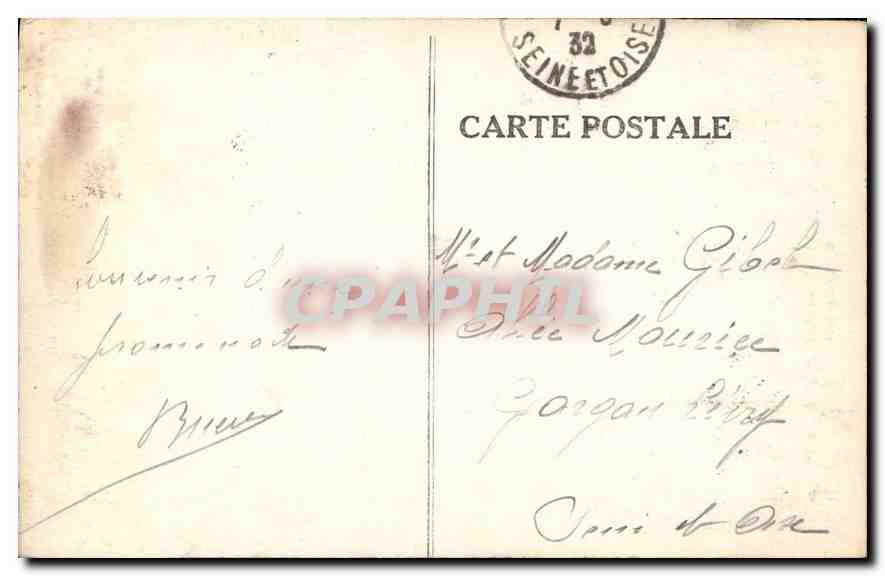 32
SEINE ET OISE
CARTE POSTALE
Souvenir d'une
promenade
Mr et Madame
Allée Maurice
Gargan Livry
Seine et Oise
CPAPHIL